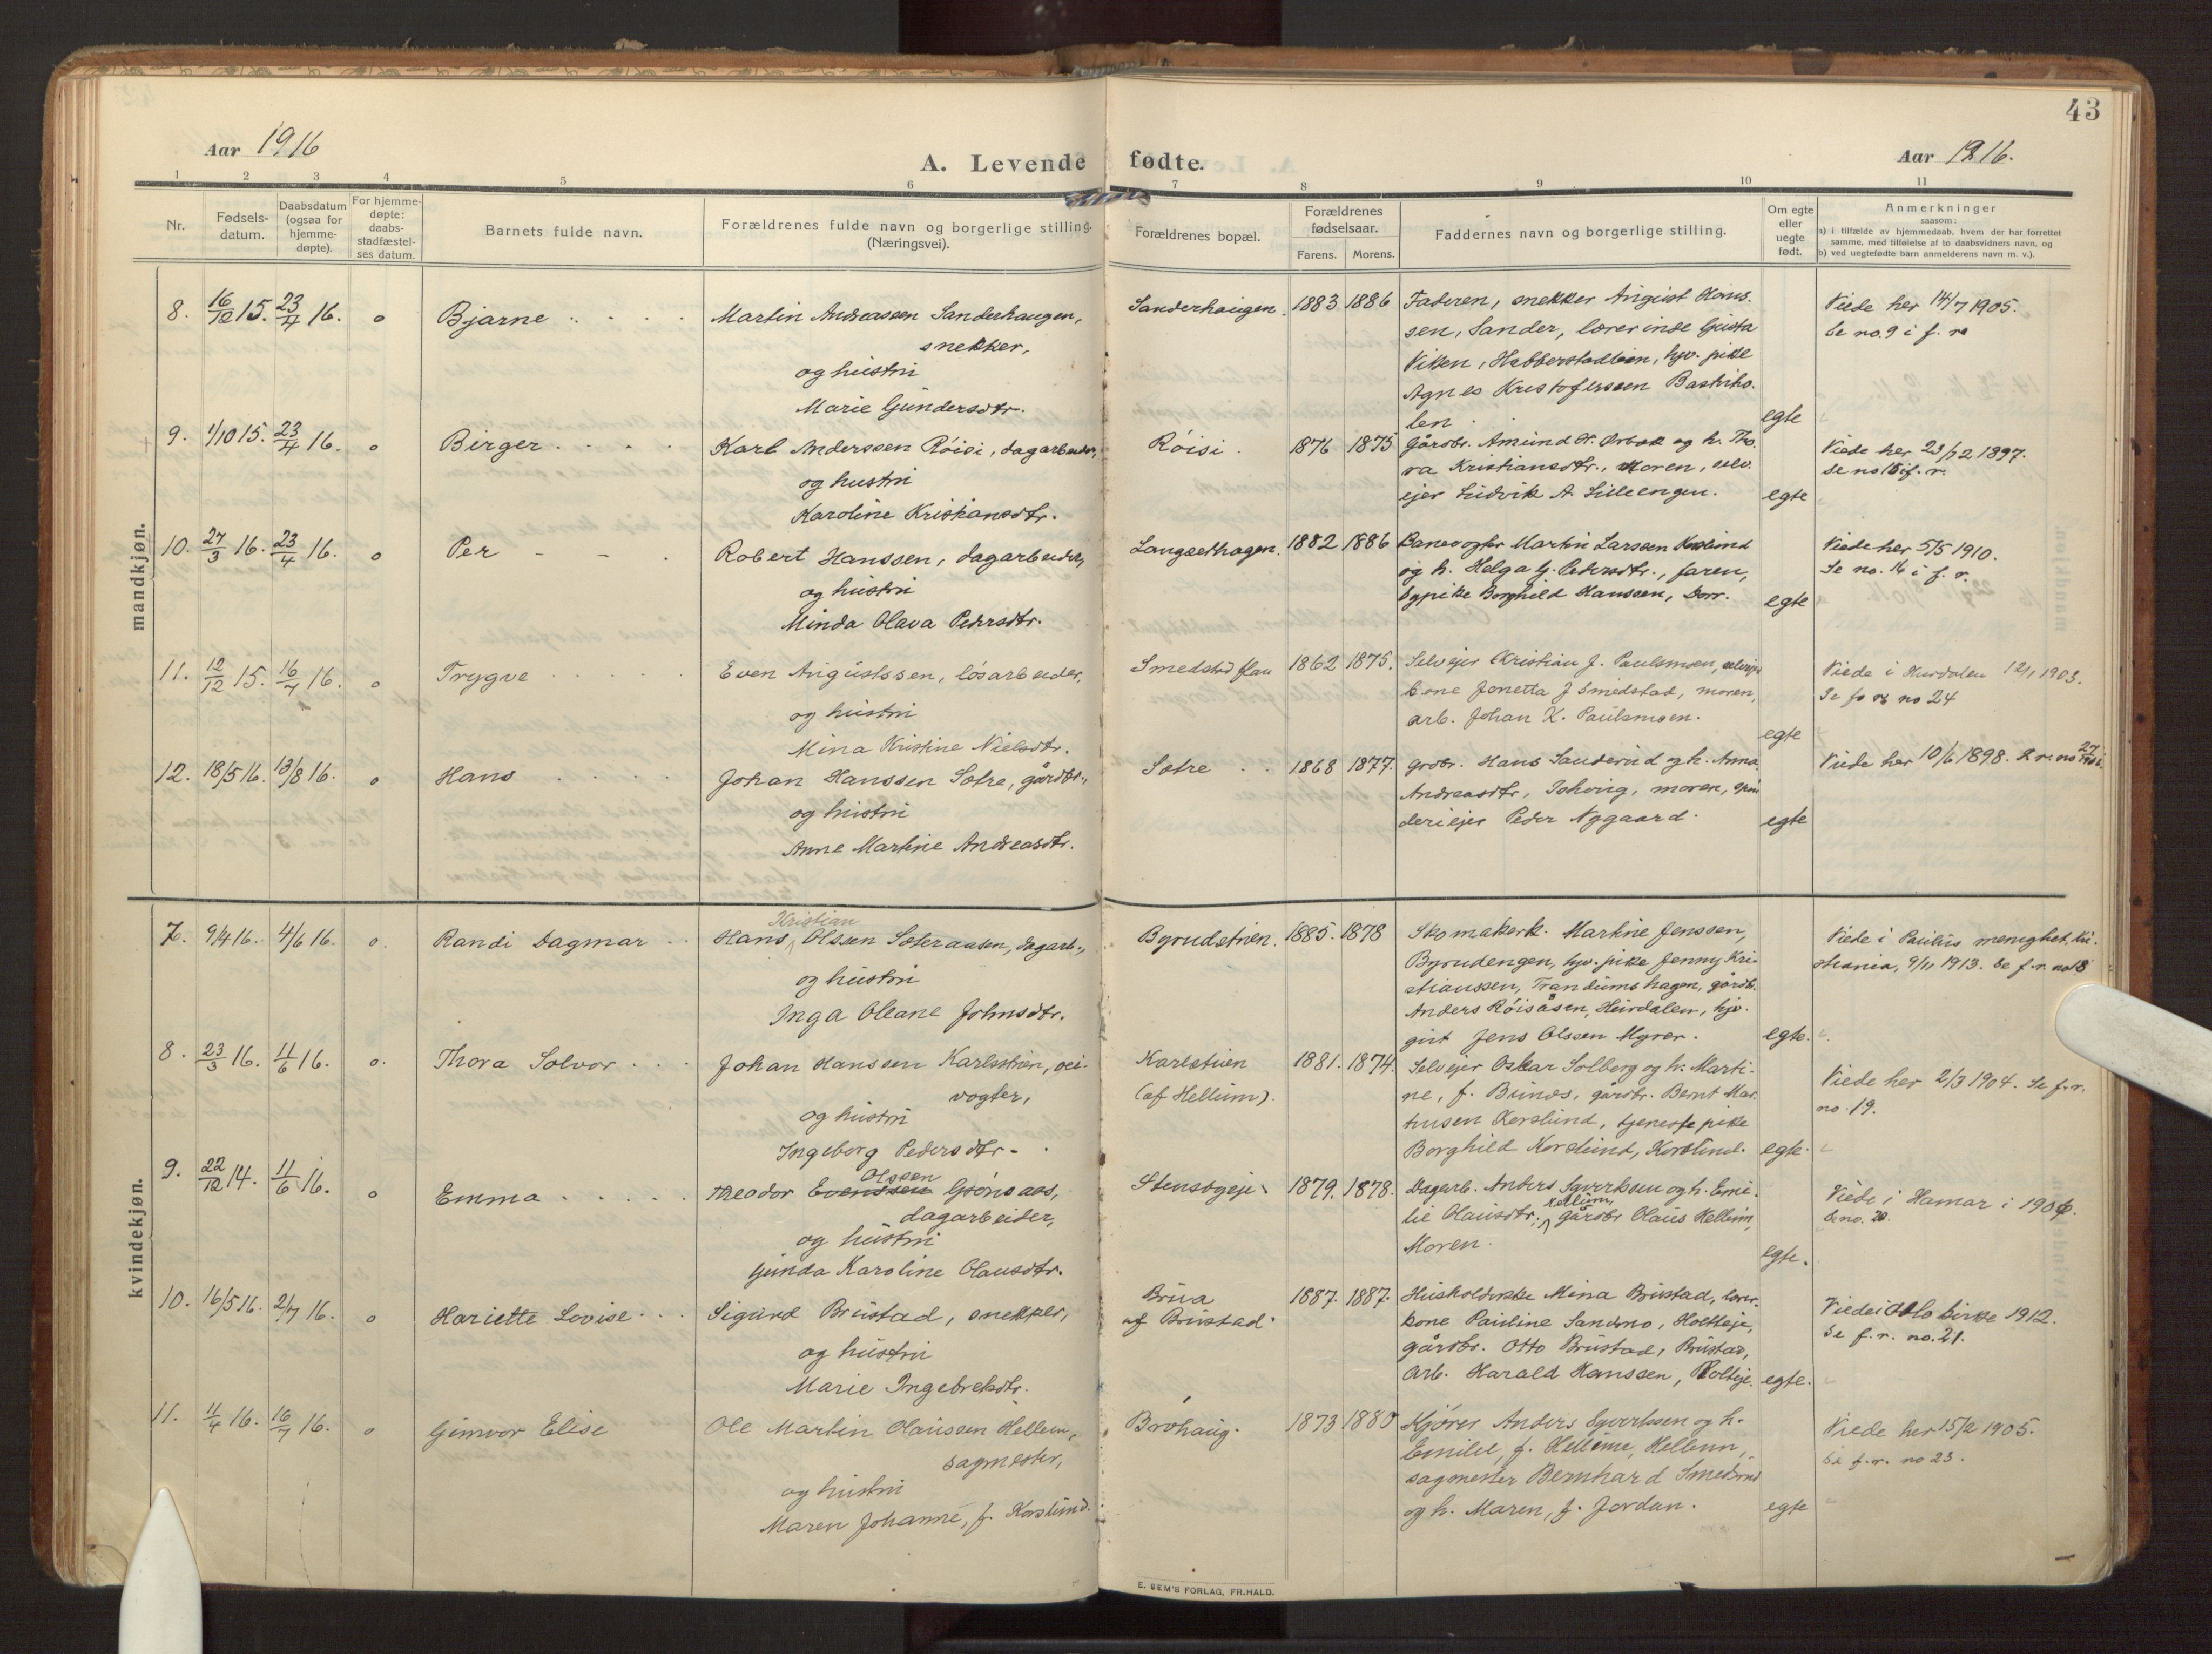 43
Aar 1916
A. Levende fødte.
Aar 1916.
1 2 3 4 5 6 7 8 9 10 11
Nr.
Fødsels-
datum.
Daabsdatum
(ogsaa for
hjemme-
døpte).
For hjemme-
døpte:
daabs-
stadfæstel-
ses datum.
Barnets fulde navn.
Forældrenes fulde navn og borgerlige stilling.
(Næringsvei).
Forældrenes bopæl.
Forældrenes
fødselsaar.
Farens. Morens.
Faddernes navn og borgerlige stilling.
Om egte
eller
uegte
født.
Anmerkninger
saasom:
a) i tilfælde av hjemmedaab, hvem der har forrettet
samme, med tilføielse af to daabsvidners navn, og
b) ved uegtefødte barn anmelderens navn m. v.).
mandkjøn.
8. 16/12 15. 23/4 16. o Bjarne
Martin Andreassen Sanderhaugen,
snekker,
og hustru
Marie Gundersdtr.
Sanderhaugen. 1883 1886
Faderen, snekker August Hans-
sen, Sander, lærerinde Gusta
Viken, Hebberstadteien, hjv. pike
Agnes Kristofersen Bashiho-
len
egte
Viede her 14/7 1905.
Se no. 9 i f. r.
9. 1/10 15. 23/4 16. o Birger
Karl Anderssen Röisi, dagarbeider,
og hustru
Karoline Kristiansdtr.
Röisi. 1876 1875
Gårdbr. Amund H. Ørbæk og h. Tho-
ra Kristiansdtr., Moren, selv-
ejer Ludvik A. Lilleengen.
egte
Viede her 23/12 1897.
Se no 15 i f. r.
10. 27/3 16. 23/4 16. o Per
Robert Hanssen, dagarbeider,
og hustru
Minda Olava Pedersdtr.
Langsethagen. 1882 1886
Banevogter Martin Larssen Korslund
og h. Helga G. Pedersdtr., faren,
sypike Borghild Hanssen, Dorr.
egte
Viede her 5/5 1910.
Se no. 16 i f. r.
11. 12/12 15. 16/7 16. o Trygve
Even Augustssen, lösarbeider,
og hustru
Mina Kristine Nielsdtr.
Smedstadflau 1862 1875.
Selvejer Kristian J. Paulsmoen, selvejer-
kone Jonetta J Smedstad, moren,
arb. Johan K. Paulsmoen.
egte
Viede i Hurdalen 12/1 1903.
Se fo r no 24
12. 18/5 16. 13/8 16. o Hans
Johan Hanssen Sætre, gårdbr.,
og hustru
Anne Martine Andreasdtr.
Sætre 1868 1877.
grdbr. Hans Sanderud og h. Anna
Andreasdtr, Tohovig, moren, spin-
deriejer Peder Nygaard.
egte
Viede her 10/6 1898.
kvindekjøn.
7. 9/4 16. 4/6 16. o. Randi Dagmar
Kristian
Hans Olssen Sæteraasen, dagarb.,
og hustru
Inga Oleane Johnsdtr.
Byrudstuen. 1885. 1878
Skomakerk. Martine Jenssen,
Byrudengen, hjv. pike Jenny Kri-
stianssen, Trandumshagen, gårdb.
Anders Röisåsen, Hurdalen, hjv.
gut Jens Olssen Myrer.
egte.
Viede i Paulus menighet, Kri-
stiania, 9/11 1913. Se f. r. no 18
8. 23/3 16. 11/6 16. o. Thora Solvor
Johan Hanssen Karlstien, vei-
vogter,
og hustru
Ingeborg Pedersdtr.
Karlstien
(af Hellum).
1881. 1874.
Selvejer Oskar Solberg og h. Marti-
ne, f. Bunæs, gårdbr. Bernt Mar-
tinsen Korslund, tjenestepike
Borghild Korslund, Korslund.
egte.
Viede her 2/3 1904. Se f. r.
no. 19.
9. 22/12 14. 11/6 16. o Emma
Olssen
Theodor Evenssen Grönaas,
dagarbeider,
og hustru
Gunda Karoline Olausdtr.
Stensbyeje 1879. 1878.
Dagarb. Anders Syverssen og h. Emi-
Hellum,
lie Olausdtr. gårdbr Olaus Hellum
Moren.
egte.
Viede i Hamar i 1906.
Se no. 20.
10. 16/5 16. 2/7 16. o Hariette Lovise
Sigurd Brustad, snekker,
og hustru
Marie Ingebretsdtr.
Brua
af Brustad
1887. 1887.
Husholderske Mina Brustad, lærer-
kone Pauline Sandmo, Holteje,
gårdbr. Otto Brustad, Brustad,
Arb. Harald Hanssen, Holteje.
egte.
Viede i Oslo kirke 1912.
Se f. r. no. 21.
11. 11/4 16. 16/7 16. o Gunvor Elise
Ole Martin Olaussen Hellum,
sagmester,
og hustru
Maren Johanne, f. Korslund.
Brohaug. 1873 1880
Kjörer Anders Syverssen og h.
Emilie, f. Hellum, Hellum,
sagmester Bernhard Smedsrud
og h. Maren, f. Jordan.
egte
Viede her 15/2 1905.
Se f. r. no 23.
E. SEM'S FORLAG, FR.HALD.